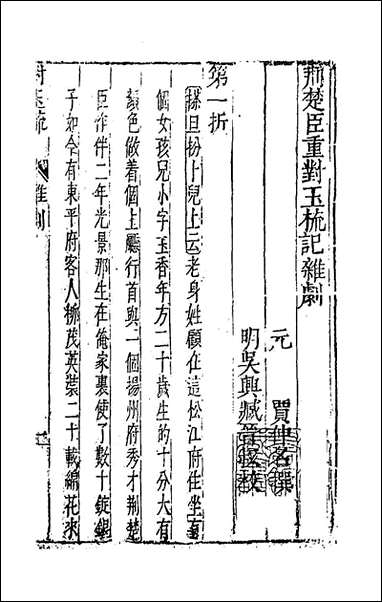 荆楚臣重對玉梳記雜劇
元 賈仲名撰
明吳興臧晉叔校
第一折
搽旦扮卜兒上云老身姓顧在這松江府住坐有
個女孩兒小字玉香年方二十歲生的十分大有
顏色做着個上廳行首與一個揚州府秀才荆楚
臣作伴二年光景那生在俺家裏使了數十錠銀
子如今有東平府客人柳茂英裝二十載綿花來
對玉梳 雜劇